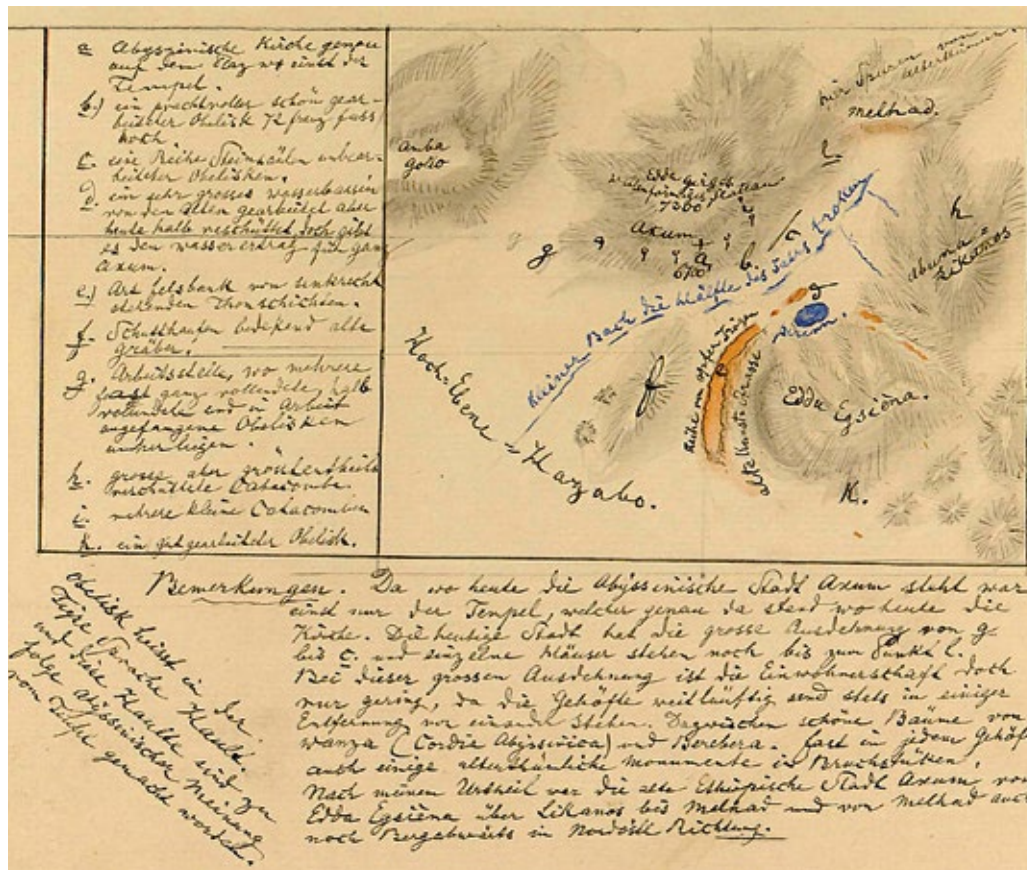 a Abyssinische Kirche genau
auf dem Plaz wo einst der
Tempel.
b.) ein prachtvoller schön gear-
beiteter Obelisk 72 franz fuss
hoch
c. eine Reihe Steinsäulen unbear-
beiteter Obelisken.
d. ein sehr grosses wasserbassin
von den Alten gearbeitet aber
heute halb verschüttet doch gibt
es den wasserertrag für ganz
Axum.
e.) Art felsbank von senkrecht
stehenden Thonschichten.
f. Schutthaufen bedekend alte
gräber.
g. Arbeitsstelle, wo mehrere
ganz vollendete, halb
vollendete und in Arbeit
angefangene Obelisken
umher liegen.
h. grosse aber grösstentheils
verschüttete Catacombe.
i. mehrere kleine Catacomben
k. ein gut gearbeiteter Obelisk.
hier Spuren von
Alterthümern
Melkad.
l
Amba
Golo
Edda Girgis
Plateau
7300
Axum
a
b
c
g
h
Abuna
Likanos
kleiner Bach die Hälfte des Jahrs troken
d
Hoch-Ebene Hazabo.
f
Reihe von opfer Trögen
e
alte Kunststrasse
Edda Egsiena.
K.
Bemerkungen. Da wo heute die Abyssinische Stadt Axum steht war
einst nur der Tempel, welcher genau da stand wo heute die
Kirche. Die heutige Stadt hat die grosse Ausdehnung von g.
bis c. und einzelne Häuser stehen noch bis zum Punkt l.
Bei dieser grossen Ausdehnung ist die Einwohnerschaft doch
nur gering, da die Gehöfte weitläufig und stets in einiger
Entfernung von einander stehen. Dazwischen schöne Bäume von
wanza (Cordia Abyssinica) und Berebera. fast in jedem Gehöft
auch einige alterthümliche Monumente in Bruchstüken.
Nach meinem Urtheil war die alte Ethiopische Stadt Axum von
Edda Egsiena über Likanos bis Melkad und von Melkad auch
noch Bergabwärts in Nordöstl Richtung.
Obelisk heisst in der
Tigre Sprache Haulti.
und diese Haulte sind zu
folge abyssinischer Meinung
vom Teufel gemacht worden.